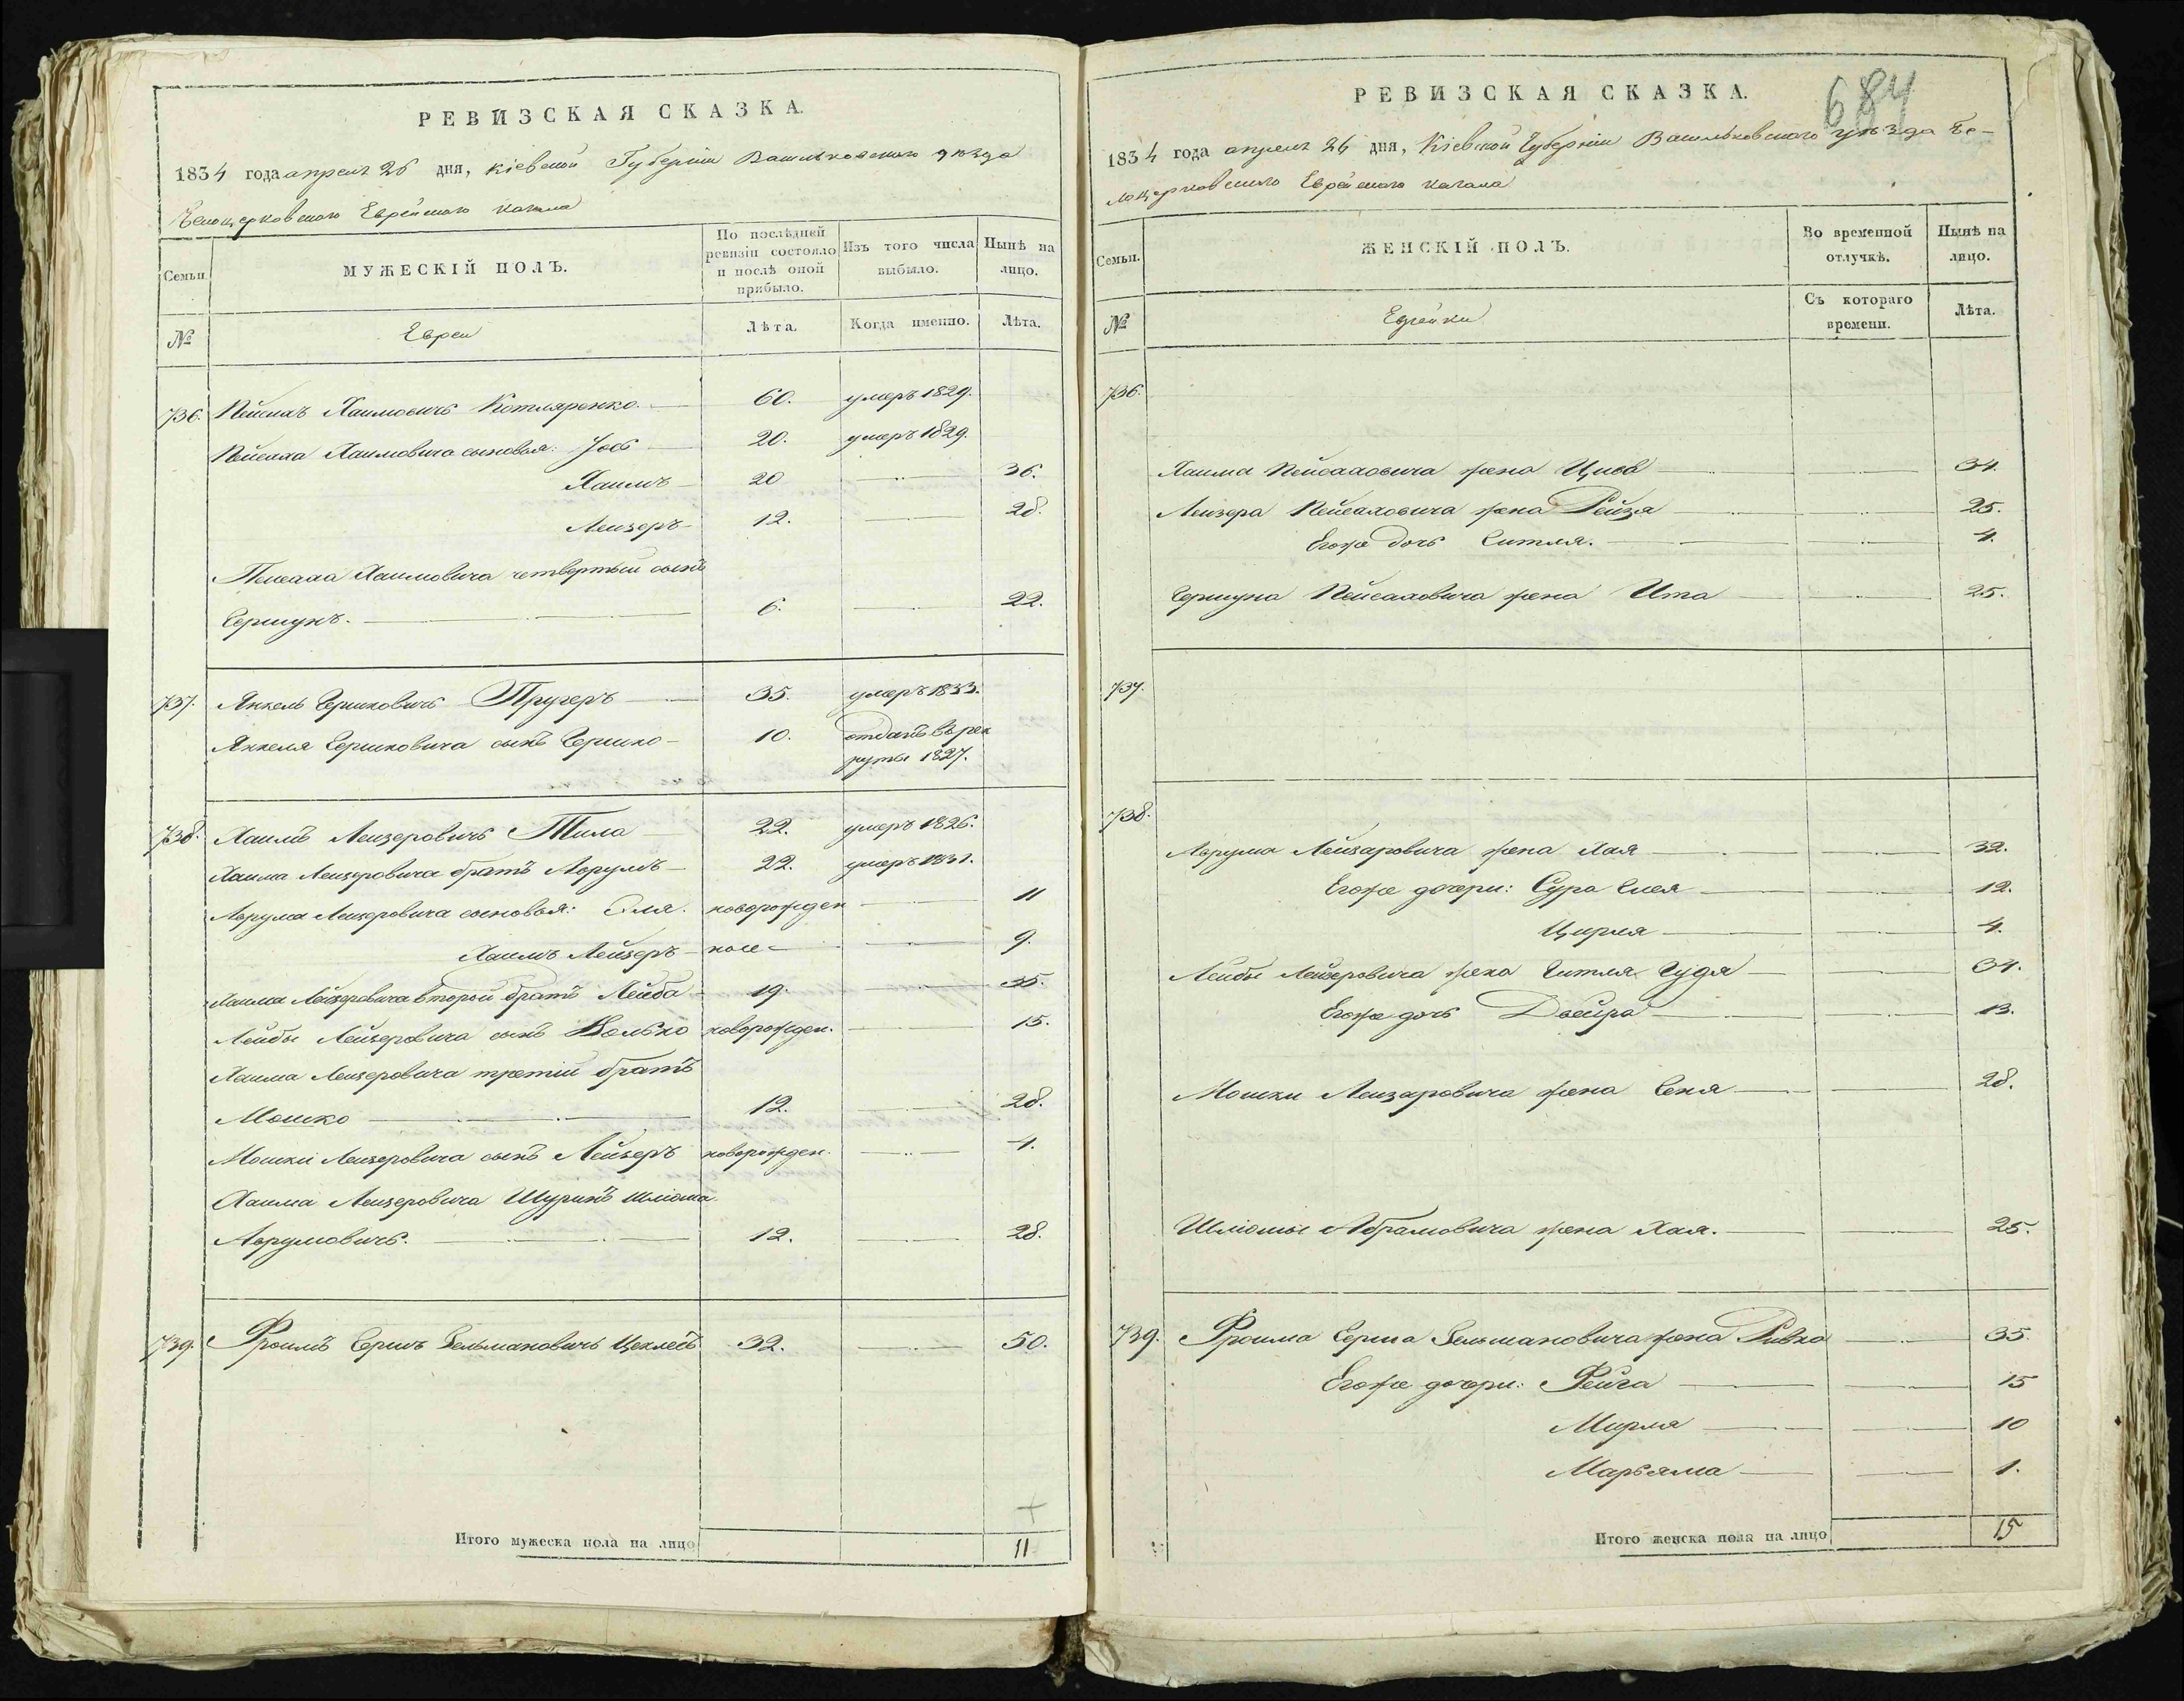 РЕВИЗСКАЯ СКАЗКА.
1834 года апреля 26 дня, Кіевской Губерніи Васильковскаго уѣзда
Белоцерковскаго Еврейскаго Кагала
Семьи.
МУЖЕСКІЙ ПОЛЪ.
По послѣдней ревизіи состояло и послѣ оной прибыло.
Изъ того числа выбыло.
Нынѣ на лицо.
№
Евреи
Лѣта.
Когда именно.
Лѣта.
736. Пейсахъ Хаимовичъ Котляренко. 60. умеръ 1829.
Пейсаха Хаимовича сыновья: Іось 20. умеръ 1829.
Хаимъ 20 36.
Лейзеръ 12. 28.
Пейсаха Хаимовича четвертый сынъ
Гершунъ. 6. 22.
737. Янкель Гершковичъ Пругеръ 35. умеръ 1833.
Янкеля Гершковича сынъ Гершко 10. отданъ въ рек
руты 1827.
738. Хаимъ Лейзеровичъ 22. умеръ 1826.
Хаима Лейзеровича братъ Аврумъ 22. умеръ 1831.
Аврума Лейзеровича сыновья: Эля. новорожден 11
Хаимъ Лейзеръ ное 9.
Хаима Лейзеровича второй братъ Лейба 19. 35.
Лейбы Лейзеровича сынъ Волько новорожден. 15.
Хаима Лейзеровича третій братъ
Мошко 12. 28.
Мошки Лейзеровича сынъ Лейзеръ новорожден. 4.
Хаима Лейзеровича Шуринъ Шліома
Аврумовичъ. 12. 28.
739. Фроимъ Гершъ Зельмановичъ 32. 50.
Итого мужеска пола на лицо 11
684
РЕВИЗСКАЯ СКАЗКА.
1834 года апреля 26 дня, Кіевской Губерніи Васильковскаго уѣзда Бе-
лоцерковскаго Еврейскаго Кагала
Семьи.
ЖЕНСКІЙ ПОЛЪ.
Во временной отлучкѣ.
Нынѣ на лицо.
№
Еврейки
Съ котораго времени.
Лѣта.
736.
Хаима Пейсаховича жена 34.
Лейзера Пейсаховича жена Рейзя 25.
Егоже дочь Гитля. 4.
Гершуна Пейсаховича жена Ита 25.
737.
738.
Аврума Лейзаровича жена Хая 32.
Егоже дочери: Сура 12.
Цирля 4.
Лейбы Лейзеровича жена Гитля Гудя 34.
Егоже дочь Двейра 13.
Мошки Лейзаровича жена Геня 28.
Шліомы Абрамовича жена Хая. 25.
739. Фроима Герша Зельмановича жена Ривка 35.
Егоже дочери: Фейга 15
Мирля 10
Марьяма 1.
Итого женска пола на лицо 15